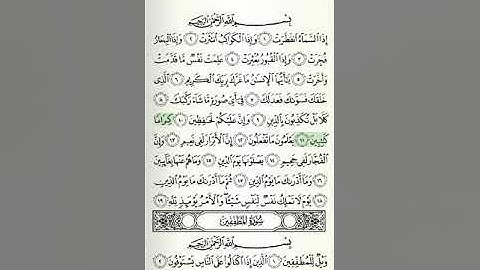 بِسْمِ ٱللَّهِ ٱلرَّحْمَٰنِ ٱلرَّحِيمِ
إِذَا ٱلسَّمَآءُ ٱنفَطَرَتْ ١ وَإِذَا ٱلْكَوَاكِبُ ٱنتَثَرَتْ ٢ وَإِذَا ٱلْبِحَارُ
فُجِّرَتْ ٣ وَإِذَا ٱلْقُبُورُ بُعْثِرَتْ ٤ عَلِمَتْ نَفْسٌ مَّا قَدَّمَتْ
وَأَخَّرَتْ ٥ يَٰٓأَيُّهَا ٱلْإِنسَٰنُ مَا غَرَّكَ بِرَبِّكَ ٱلْكَرِيمِ ٦ ٱلَّذِى
خَلَقَكَ فَسَوَّىٰكَ فَعَدَلَكَ ٧ فِىٓ أَىِّ صُورَةٍ مَّا شَآءَ رَكَّبَكَ ٨
كَلَّا بَلْ تُكَذِّبُونَ بِٱلدِّينِ ٩ وَإِنَّ عَلَيْكُمْ لَحَٰفِظِينَ ١٠ كِرَامًا
كَٰتِبِينَ ١١ يَعْلَمُونَ مَا تَفْعَلُونَ ١٢ إِنَّ ٱلْأَبْرَارَ لَفِى نَعِيمٍ ١٣ وَإِنَّ
ٱلْفُجَّارَ لَفِى جَحِيمٍ ١٤ يَصْلَوْنَهَا يَوْمَ ٱلدِّينِ ١٥ وَمَا هُمْ عَنْهَا بِغَآئِبِينَ
١٦ وَمَآ أَدْرَىٰكَ مَا يَوْمُ ٱلدِّينِ ١٧ ثُمَّ مَآ أَدْرَىٰكَ مَا يَوْمُ ٱلدِّينِ
١٨ يَوْمَ لَا تَمْلِكُ نَفْسٌ لِّنَفْسٍ شَيْـًٔا وَٱلْأَمْرُ يَوْمَئِذٍ لِّلَّهِ ١٩
سُورَةُ المُطَفِّفِينَ
بِسْمِ ٱللَّهِ ٱلرَّحْمَٰنِ ٱلرَّحِيمِ
وَيْلٌ لِّلْمُطَفِّفِينَ ١ ٱلَّذِينَ إِذَا ٱكْتَالُوا۟ عَلَى ٱلنَّاسِ يَسْتَوْفُونَ ٢